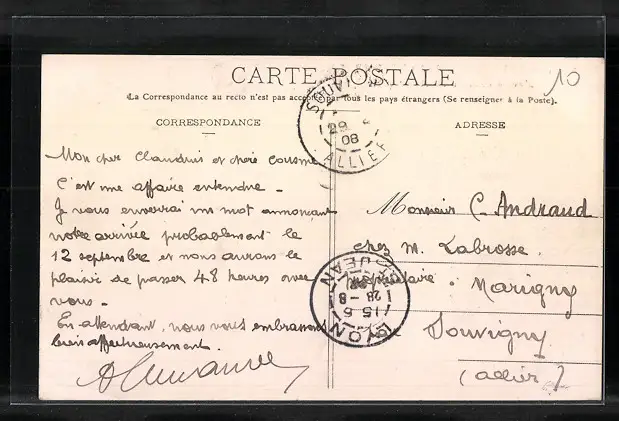 CARTE POSTALE
10
La Correspondance au recto n'est pas acceptée par tous les pays étrangers (Se renseigner à la Poste).
CORRESPONDANCE
ADRESSE
Mon cher Claudius et chère cousine
C'est une affaire entendue -
Je vous enverrai un mot annonçant
notre arrivée probablement le
12 septembre et nous aurons le
plaisir de passer 48 heures avec
vous -
En attendant, nous vous embrassons
bien affectueusement.
Monsieur C. Andraud
chez M. Labrosse
propriétaire à Marigny
Souvigny
(Allier)
SOUVIGNY
29
08
ALLIER
LYON
15 6
28 - 8
ST JEAN